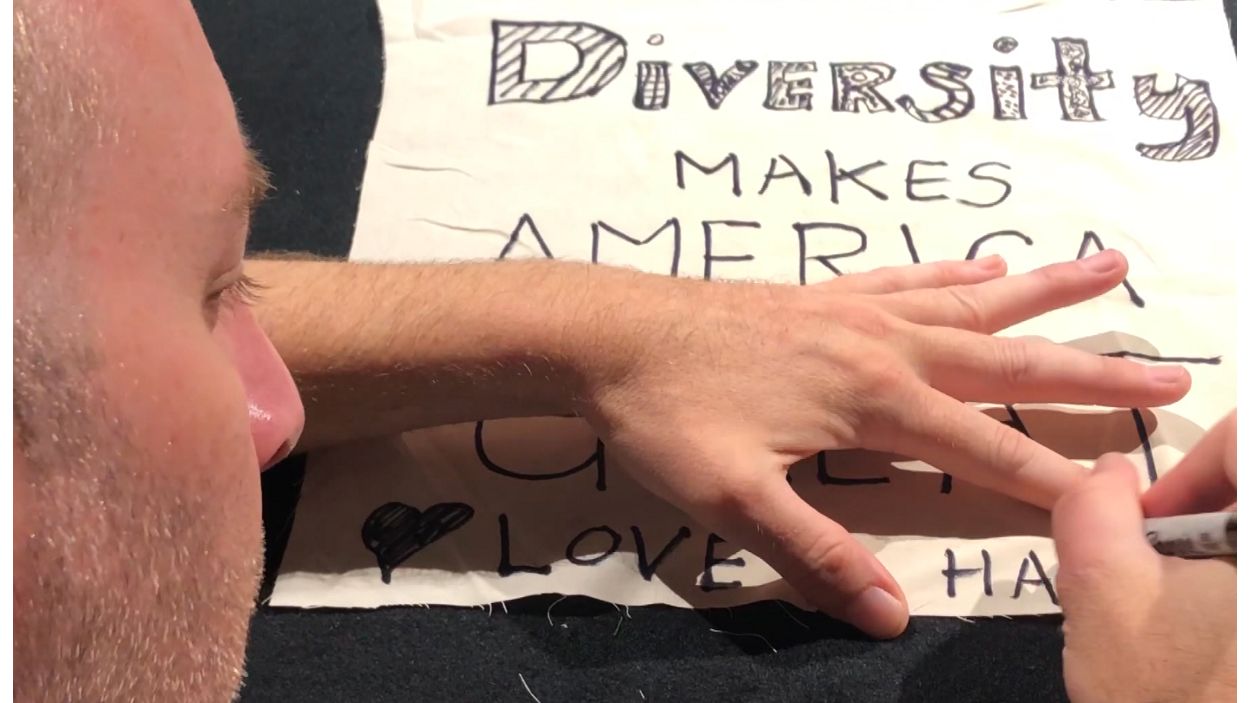 DiVERSity
MAKES
AMERICA
GREAT
♥ LOVE HA